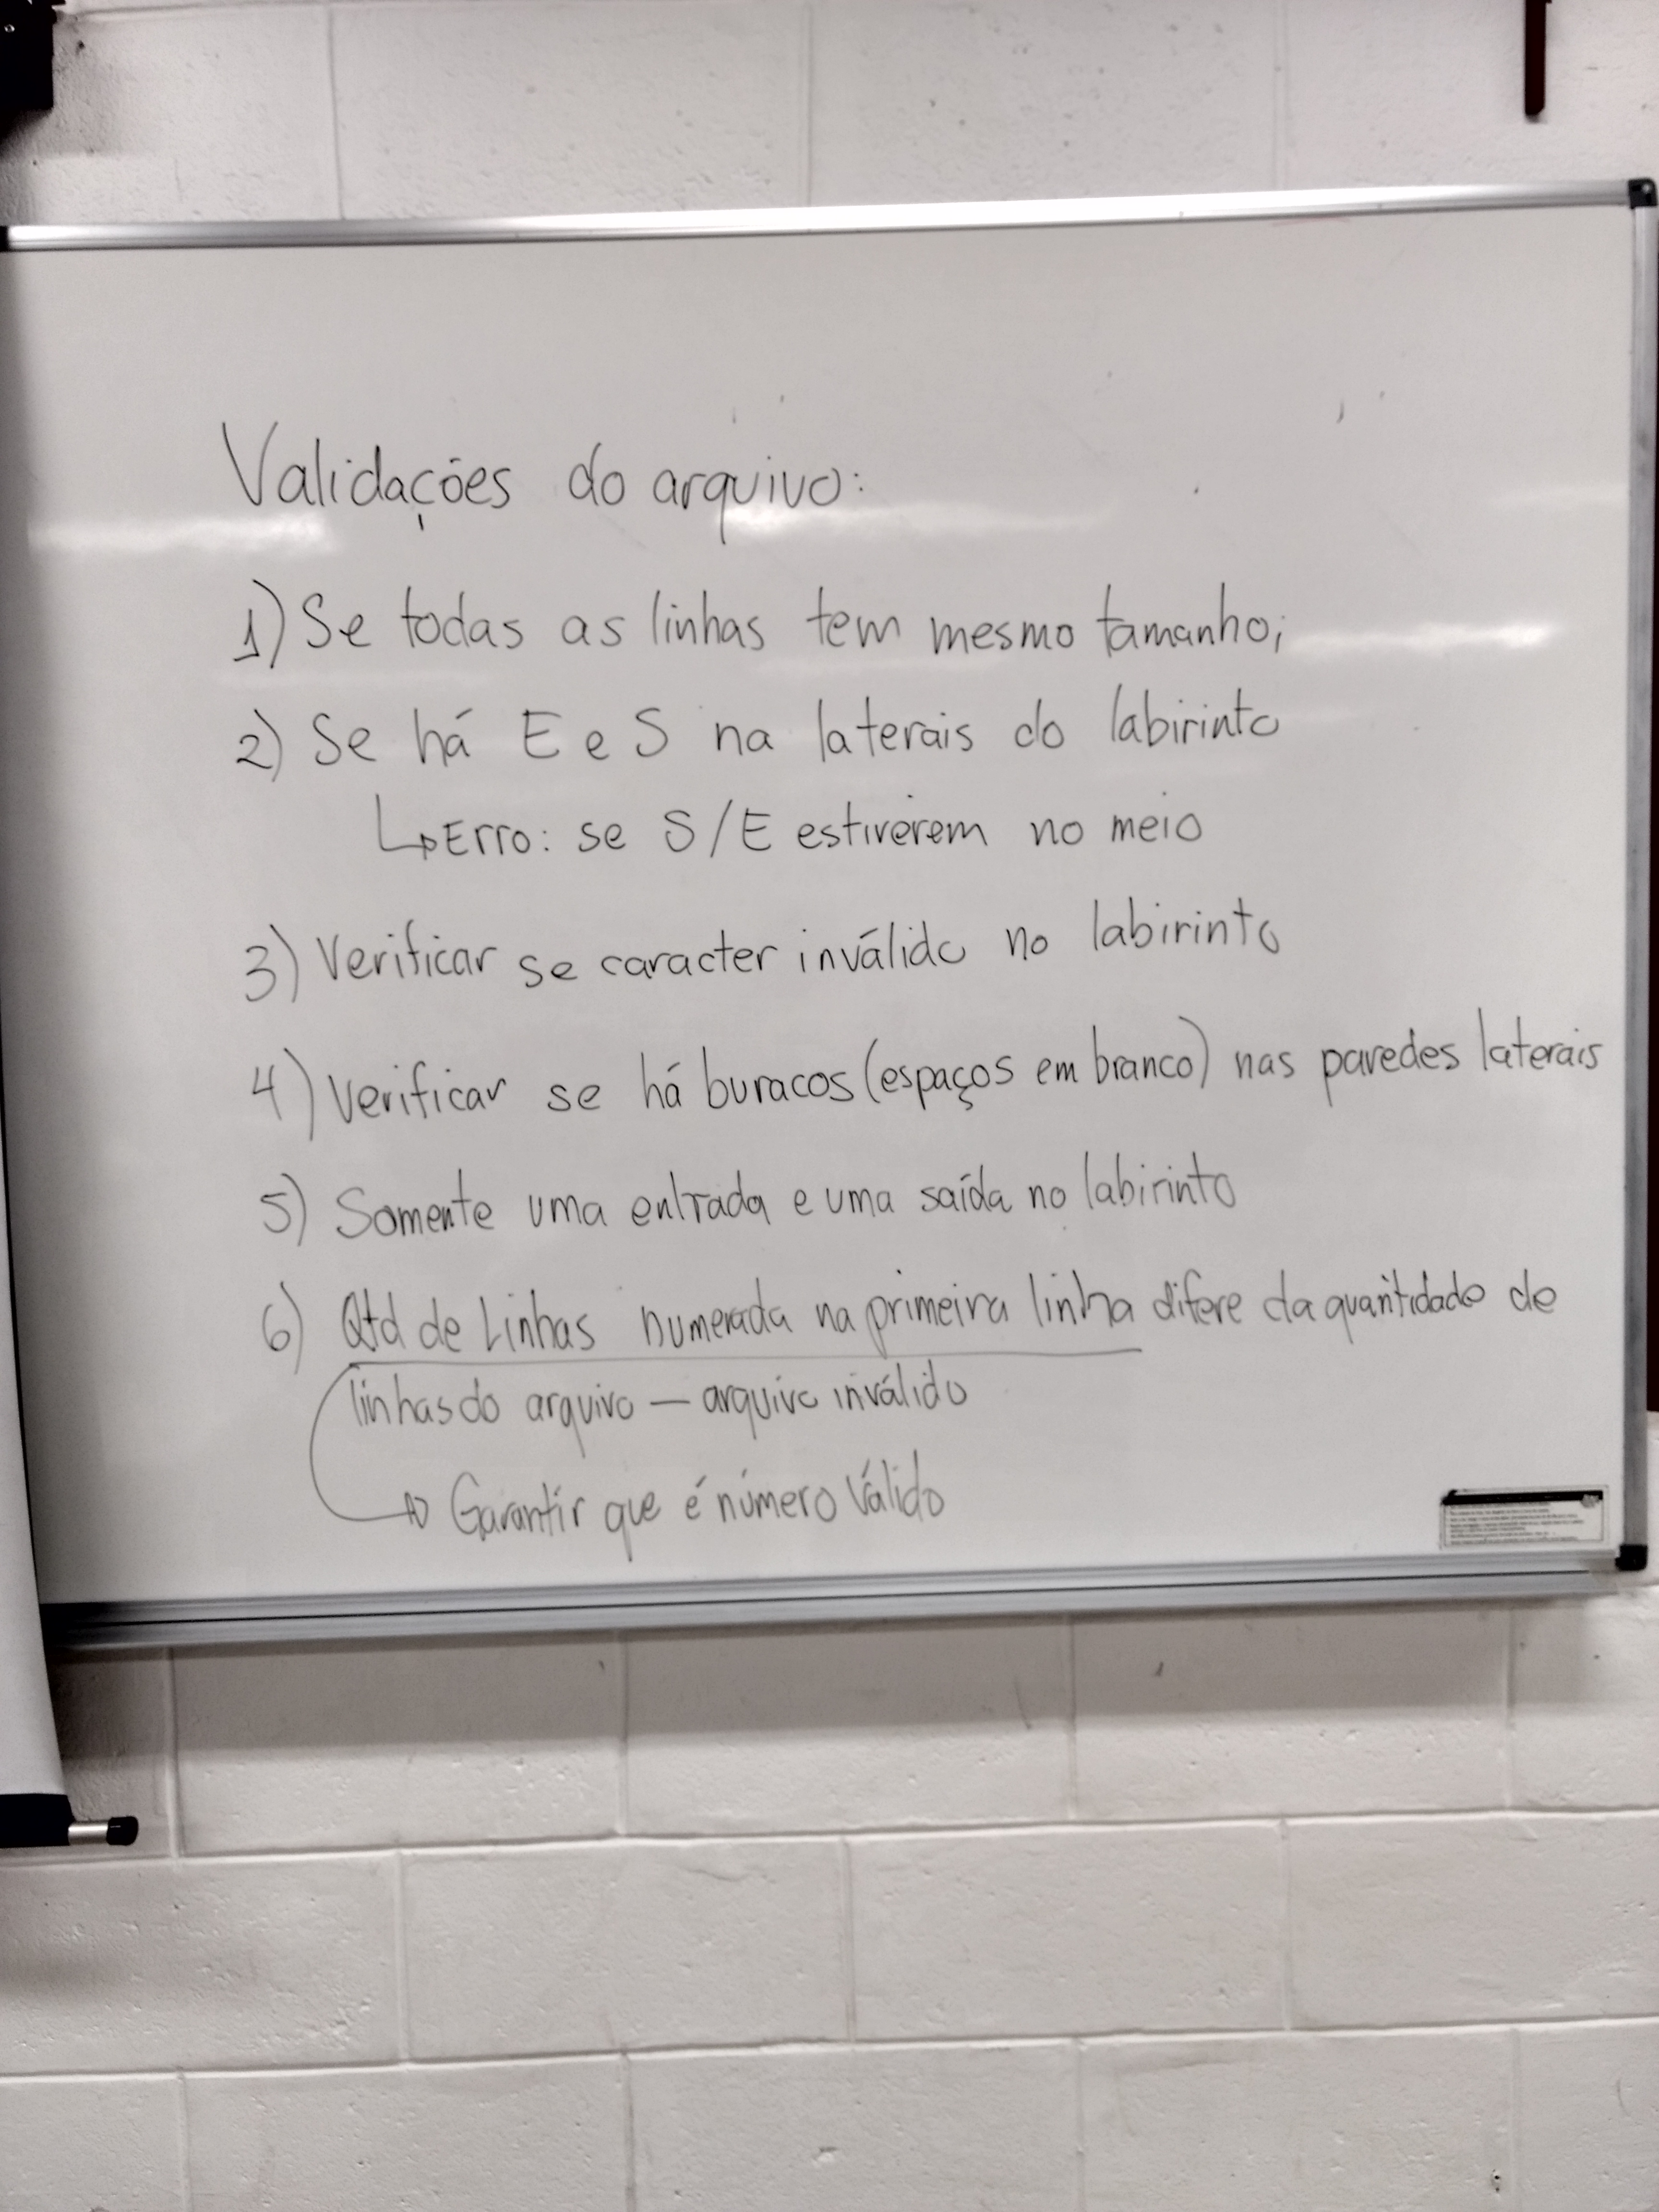 Validações do arquivo:
1) Se todas as linhas tem mesmo tamanho;
2) Se há E e S na laterais do labirinto
↳ Erro: se S/E estiverem no meio
3) Verificar se caracter inválido no labirinto
4) Verificar se há buracos (espaços em branco) nas paredes laterais
5) Somente uma entrada e uma saída no labirinto
6) Qtd de Linhas numerada na primeira linha difere da quantidade de
linhas do arquivo — arquivo inválido
→ Garantir que é número válido